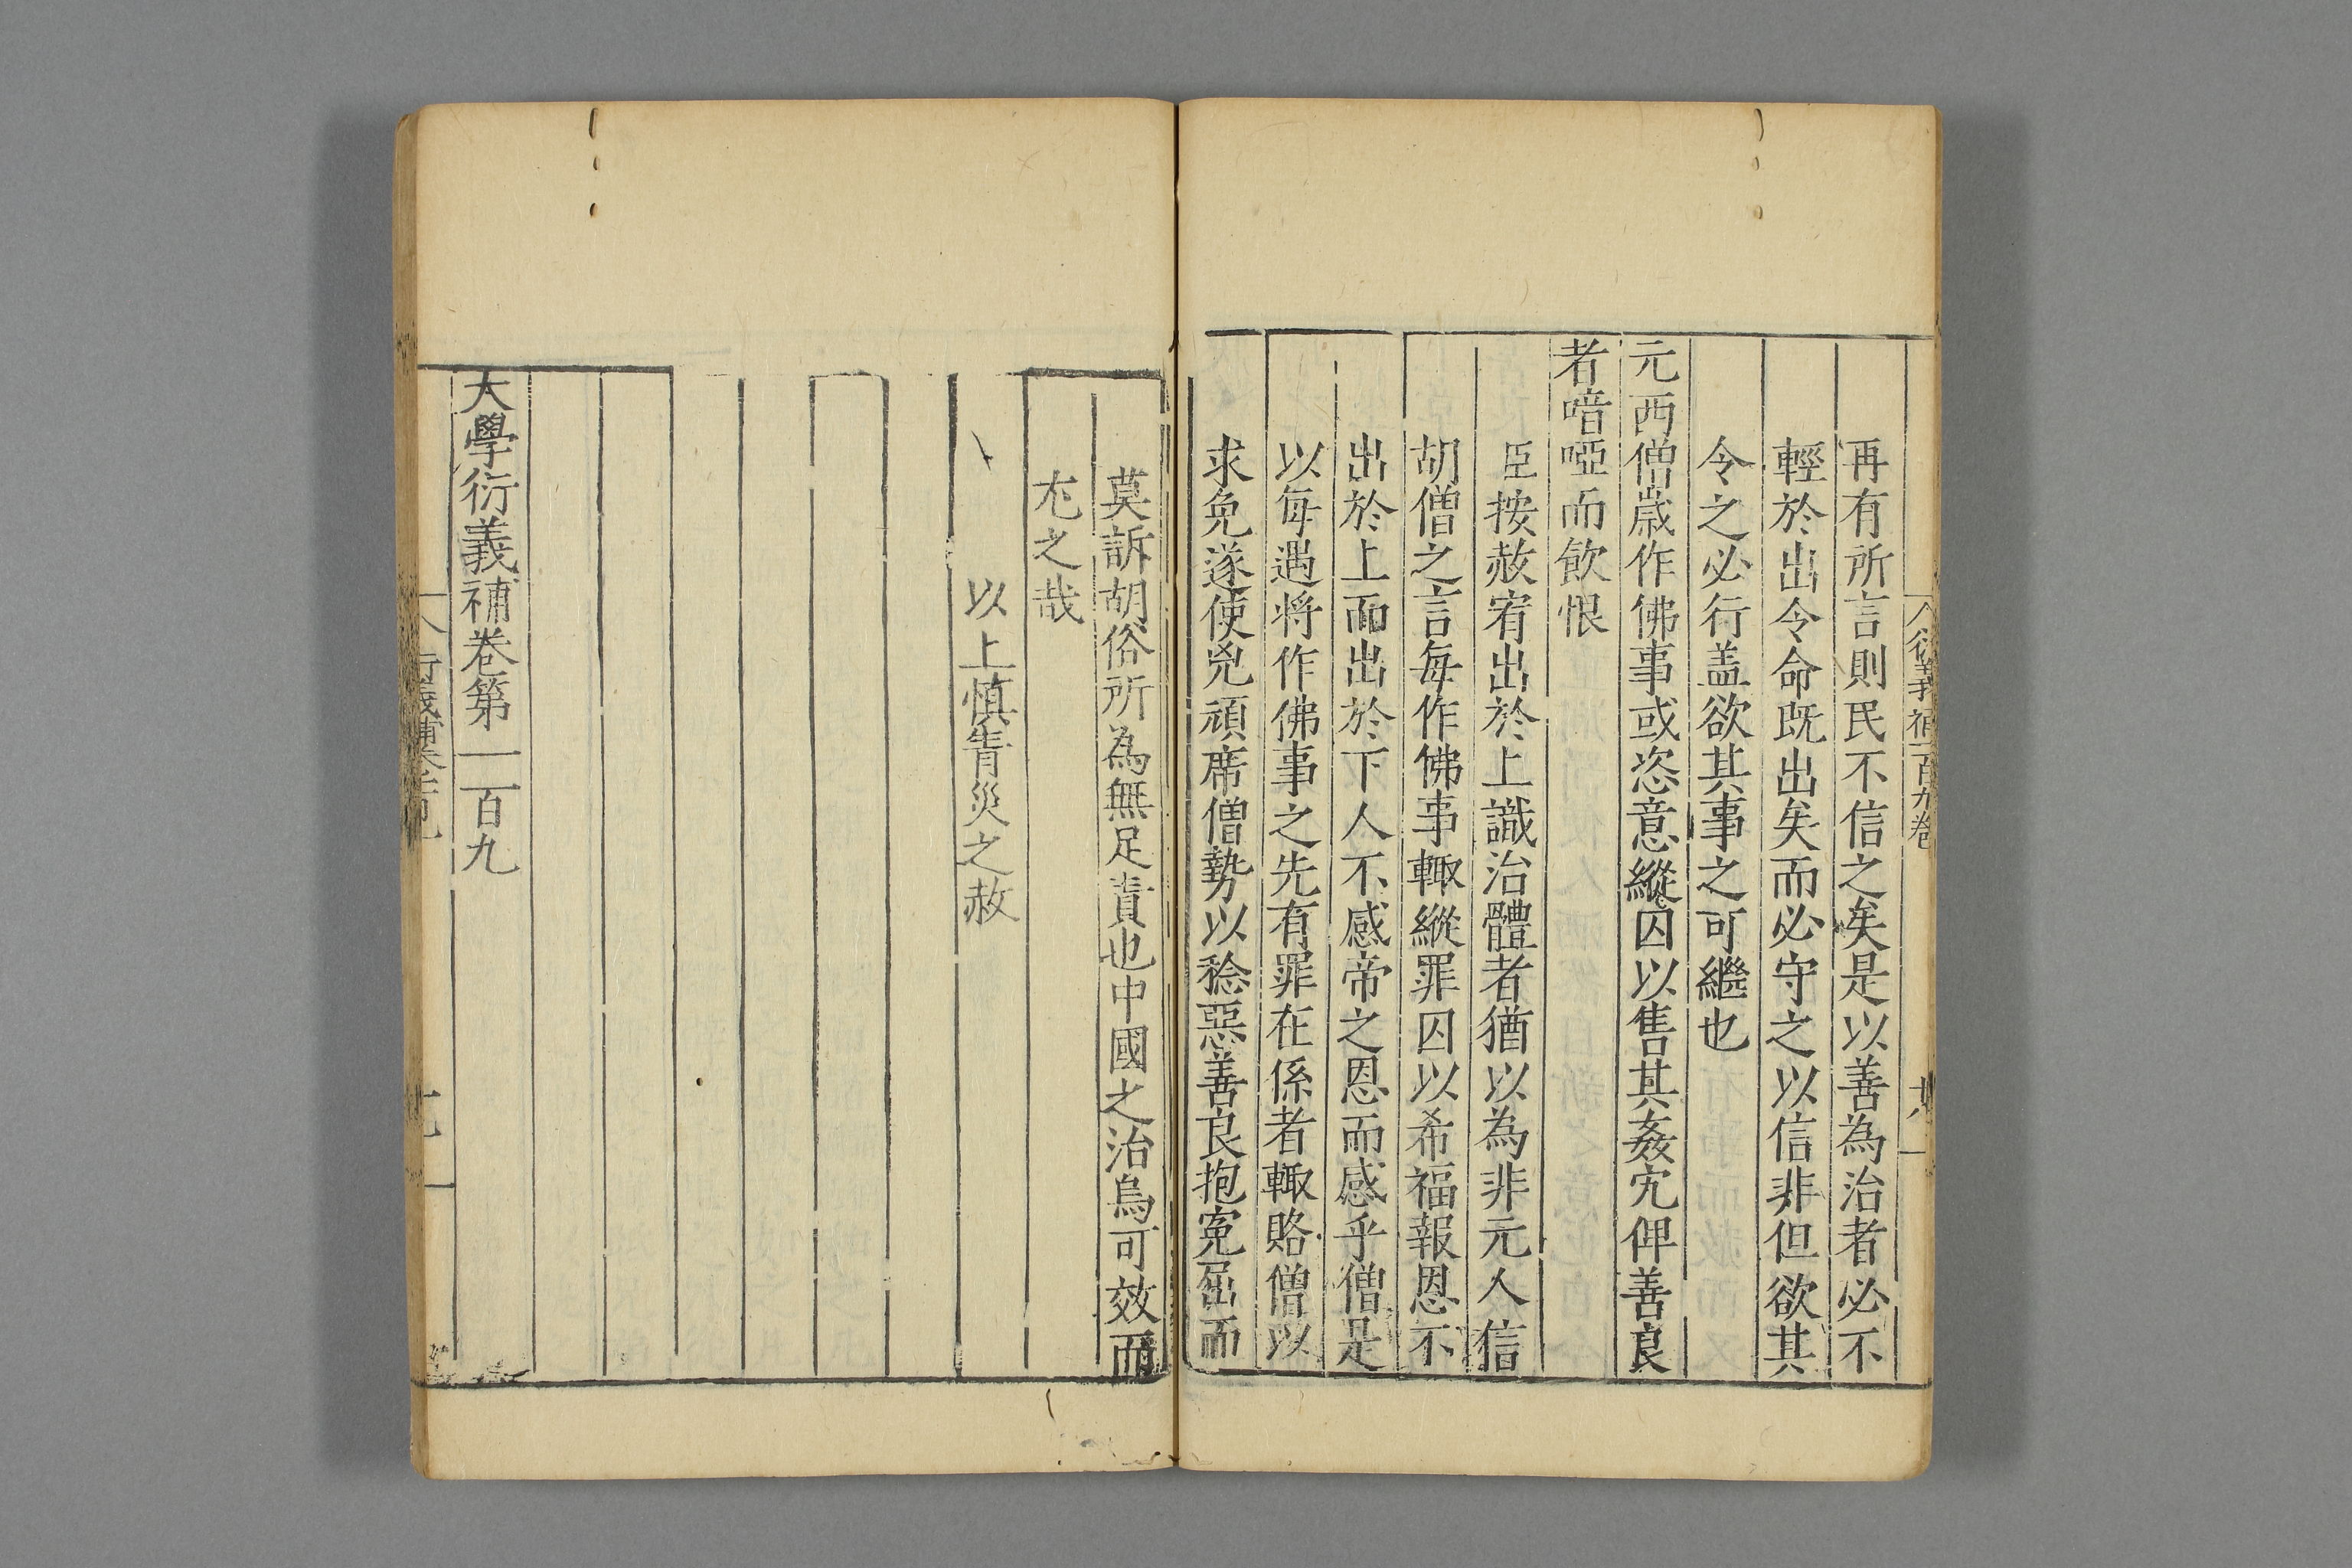 衍義補一百九卷
再有所言則民不信之矣是以善為治者必不
輕於出令命既出矣而必守之以信非但欲其
令之必行盖欲其事之可繼也
元西僧歲作佛事或恣意縱囚以售其姦宄俾善良
者喑啞而飲恨
臣按赦宥出於上識治體者猶以為非元人信
胡僧之言每作佛事輙縱罪囚以希福報恩不
出於上而出於下人不感帝之恩而感乎僧是
以每遇将作佛事之先有罪在係者輙賂僧以
求免遂使兇頑席僧勢以稔惡善良抱寃屈而
莫訴胡俗所為無足責也中國之治烏可效而
尤之哉
以上慎眚災之赦
大學衍義補卷第一百九